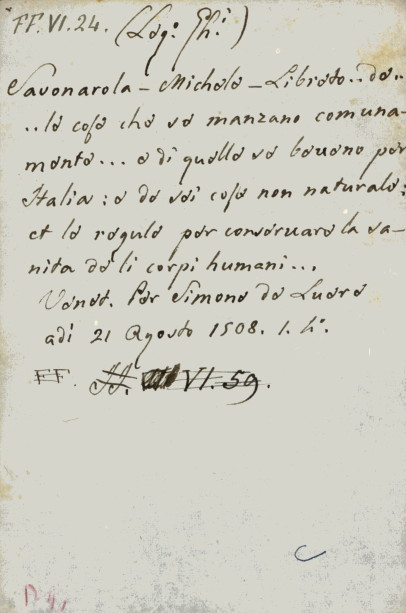 FF. VI. 24. (Leg: Gh.i)
Savonarola - Michele - Libreto.. de..
..le cose che se manzano comuna-
mente... e di quelle se beveno per
Italia: e de sei cose non naturale:
et le regule per conservare la sa-
nita de li corpi humani...
Venet. Per Simone de Luere
adi 21 Agosto 1508. 1. to.
FF. VI. 59.